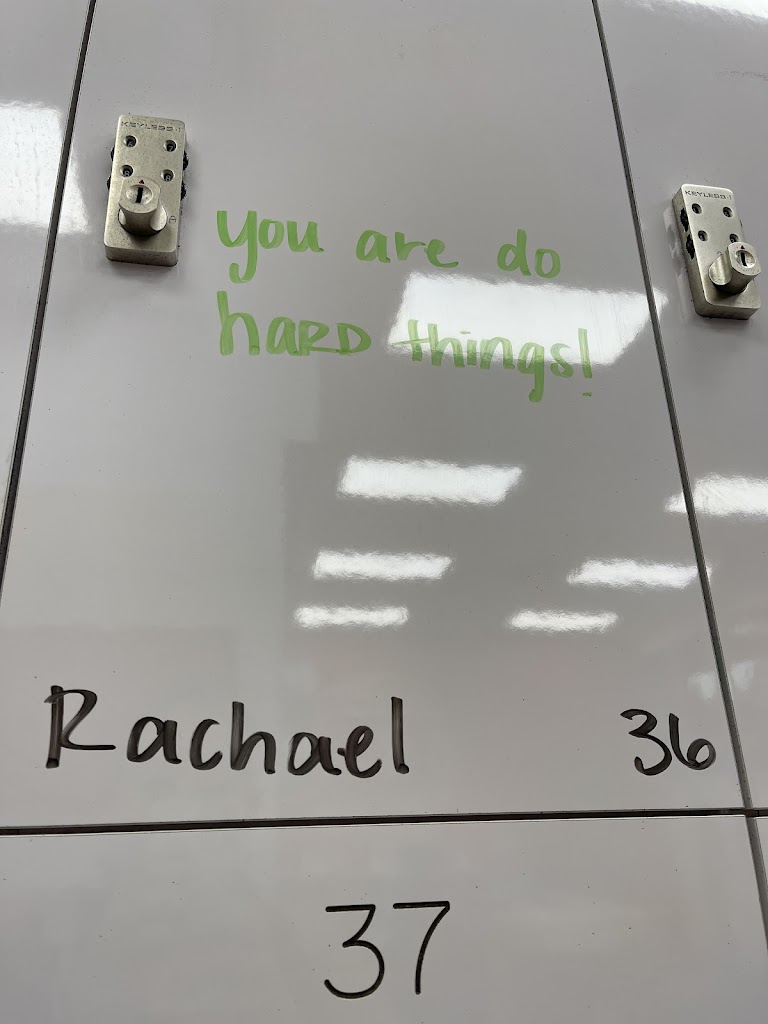 KEYLESS 1
KEYLESS 1
you are do
hard things!
Rachael 36
37